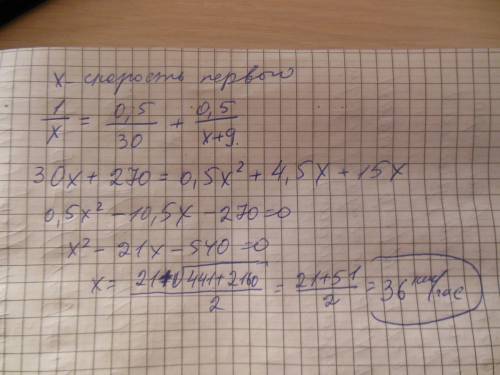 x - скорость первого
1/x = 0,5/30 + 0,5/x+9.
30x + 270 = 0,5x² + 4,5x + 15x
0,5x² - 10,5x - 270 = 0
x² - 21x - 540 = 0
x = 21+√441+2160/2 = 21+51/2 = 36 км/час